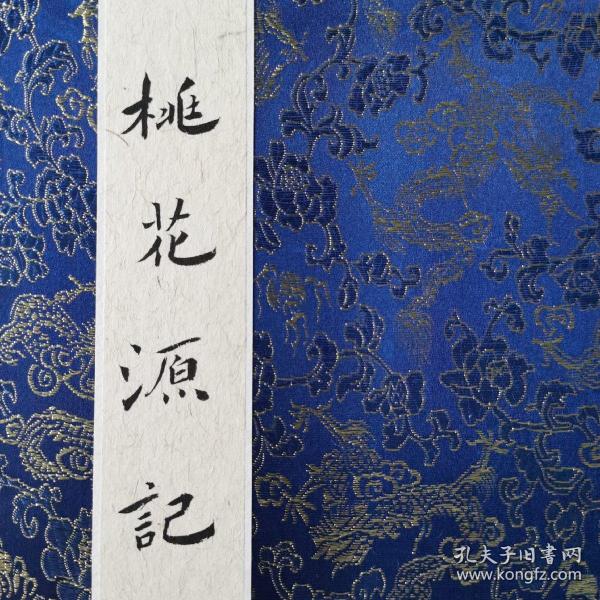 桃花源記
孔夫子旧书网
www.kongfz.com